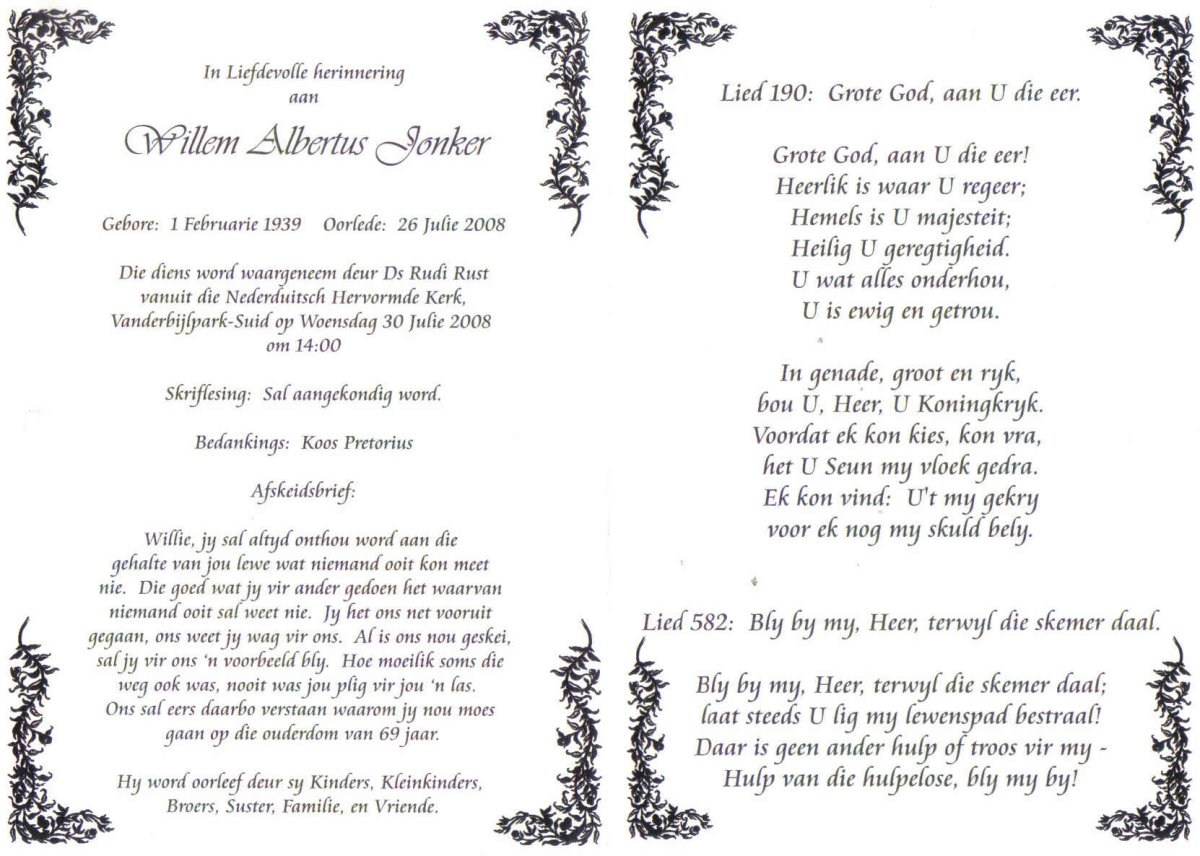 In Liefdevolle herinnering
aan
Willem Albertus Jonker
Gebore: 1 Februarie 1939 Oorlede: 26 Julie 2008
Die diens word waargeneem deur Ds Rudi Rust
vanuit die Nederduitsch Hervormde Kerk,
Vanderbijlpark-Suid op Woensdag 30 Julie 2008
om 14:00
Skriflesing: Sal aangekondig word.
Bedankings: Koos Pretorius
Afskeidsbrief:
Willie, jy sal altyd onthou word aan die
gehalte van jou lewe wat niemand ooit kon meet
nie. Die goed wat jy vir ander gedoen het waarvan
niemand ooit sal weet nie. Jy het ons net vooruit
gegaan, ons weet jy wag vir ons. Al is ons nou geskei,
sal jy vir ons 'n voorbeeld bly. Hoe moeilik soms die
weg ook was, nooit was jou plig vir jou 'n las.
Ons sal eers daarbo verstaan waarom jy nou moes
gaan op die ouderdom van 69 jaar.
Hy word oorleef deur sy Kinders, Kleinkinders,
Broers, Suster, Familie, en Vriende.
Lied 190: Grote God, aan U die eer.
Grote God, aan U die eer!
Heerlik is waar U regeer;
Hemels is U majesteit;
Heilig U geregtigheid.
U wat alles onderhou,
U is ewig en getrou.
In genade, groot en ryk,
bou U, Heer, U Koningkryk.
Voordat ek kon kies, kon vra,
het U Seun my vloek gedra.
Ek kon vind: U't my gekry
voor ek nog my skuld bely.
Lied 582: Bly by my, Heer, terwyl die skemer daal.
Bly by my, Heer, terwyl die skemer daal;
laat steeds U lig my lewenspad bestraal!
Daar is geen ander hulp of troos vir my -
Hulp van die hulpelose, bly my by!